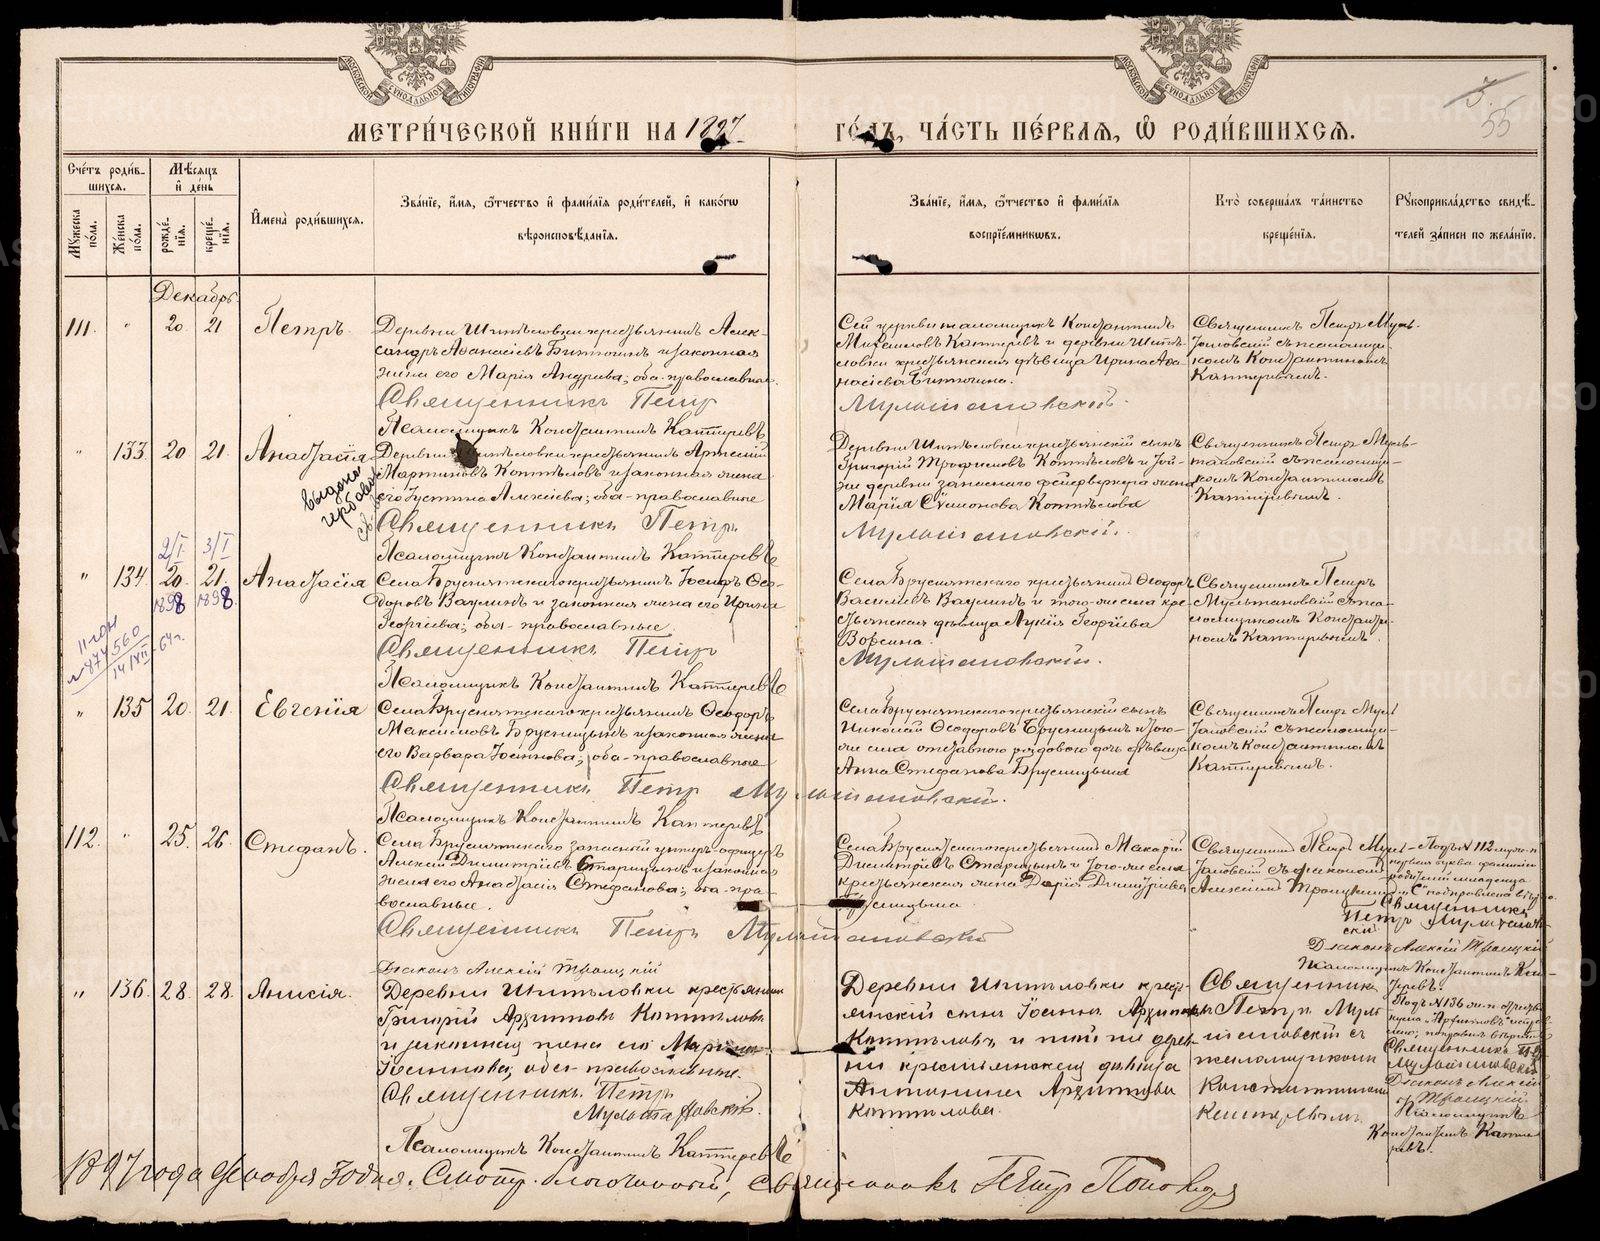 МЕТРИ́ЧЕСКОЙ КНИ́ГИ НА 1897
ГО́ДЪ, ЧА́СТЬ ПЕ́РВАЯ, Ѽ РОДИ́ВШИХСЯ.
55
Сче́тъ роди́вшихся.
Мꙋ́жеска по́ла.
Же́нска по́ла.
Мѣ́сяцъ и҆ де́нь
рожде́нїя.
креще́нїя.
И҆мена̀ роди́вшихся.
Зва́нїе, и҆́мя, ѻ҆́тчество и҆ фами́лїя роди́телей, и҆ како́гѡ
вѣроисповѣ́данїя.
Зва́нїе, и҆́мя, ѻ҆́тчество и҆ фами́лїя
воспрїе́мникѡвъ.
Кто̀ соверша́лъ та́инство
креще́нїя.
Рꙋкоприкла́дство свидѣ́-
телей за́писи по жела́нїю.
Декабрь
111. " 20 21 Петръ
Деревни Шипѣловки крестьянинъ Алек-
сандръ Аѳанасіевъ Битюгинъ и законная
жена его Марія Андреева; оба православные.
Священникъ Петр Мультановскій.
Псаломщикъ Константинъ Каптеревъ
Сей церкви псаломщикъ Константинъ
Михаиловъ Каптеревъ и деревни Шипѣ-
ловки крестьянская дѣвица Ирина Аѳа-
насіева Битюгина.
Священникъ Петръ Муль-
тановскій съ псаломщи-
комъ Константиномъ
Каптеревымъ.
" 133. 20 21. Анастасія
Деревни Шипѣловки крестьянинъ Арсеній
Мартиновъ Коптѣловъ и законная жена
его Іустина Алексіева; оба православные
Священникъ Петръ Мультановскій.
Псаломщикъ Константинъ Каптеревъ
выдана
гербовая
Деревни Шипѣловки крестьянскій сынъ
Григорій Трофимовъ Коптѣловъ и той-
же деревни запаснаго фейерверкера жена
Марія Сѵмеонова Коптѣлова
Священникъ Петръ Муль-
тановскій съ псаломщи-
комъ Константиномъ
Каптеревымъ.
2/I 3/I
" 134. 20. 21. Анастасія
1898 1898.
Села Бруснятскаго крестьянинъ Іосифъ Ѳео-
доровъ Ваулинъ и законная жена его Ирина
Георгіева; оба православные.
Священникъ Петр Мультановскій.
Псаломщикъ Константинъ Каптеревъ
II-АИ
№ 874560
14/VII-64г.
Села Бруснятскаго крестьянинъ Ѳеодоръ
Василіевъ Ваулинъ и того-же села кре-
стьянская дѣвица Лукія Георгіева
Ворсина.
Священникъ Петръ
Мультановскій съ пса-
ломщикомъ Константи-
номъ Каптеревымъ.
" 135 20. 21. Евгенія
Села Бруснятскаго крестьянинъ Ѳеодоръ
Максимовъ Брусницынъ и законная жена
его Варвара Іосифова; оба православные
Священникъ Петр Мультановскій.
Псаломщикъ Константинъ Каптеревъ
Села Бруснятскаго крестьянскій сынъ
Николай Ѳеодоровъ Брусницынъ и того-
же села отставного рядового дочь дѣвица
Анна Стефанова Брусницына
Священникъ Петръ Муль-
тановскій съ псаломщи-
комъ Константиномъ
Каптеревымъ.
112. " 25. 26. Стефанъ.
Села Бруснятскаго запасной унтеръ-офицеръ
Алексій Димитріевъ Старицынъ и законная
жена его Анастасія Стефанова; оба пра-
вославные.
Священникъ Петръ Мультановскій
Діаконъ Алексій Троицкій
Села Бруснятскаго крестьянинъ Макарій
Димитріевъ Старицынъ и того-же села
крестьянская жена Дарія Димитріева
Брусницына.
Священникъ Петръ Муль-
тановскій съ діакономъ
Алексіемъ Троицкимъ
Подъ № 112 муж. п.
первая буква фамиліи
родителей младенца
"С" подправлена вѣрно.
Священникъ
Петръ Мультанов-
скій
Діаконъ Алексій Троицкій
Псаломщикъ Константинъ Кап-
теревъ.
" 136. 28. 28. Анисія.
Деревни Шипѣловки крестьянинъ
Григорій Архиповъ Коптѣловъ
и законная жена его Марина
Іосифова; оба православные.
Священникъ Петръ
Мультановскій.
Псаломщикъ Константинъ Каптеревъ
Деревни Шипѣловки крест-
янскій сынъ Іоаннъ Архиповъ
Коптѣловъ и той же дерев-
ни крестьянская дѣвица
Антонина Архипова
Коптѣлова.
Священникъ
Петръ Муль-
тановскій съ
псаломщикомъ
Константиномъ
Каптеревымъ
Подъ № 136 ж. п.
Священникъ Петръ
Мультановскій
Діаконъ Алексій
Троицкій
Псаломщикъ
Константинъ Капте-
ревъ.
1897 года Декабря 30 дня. Смотр. благочинный, Священникъ Петр Попов